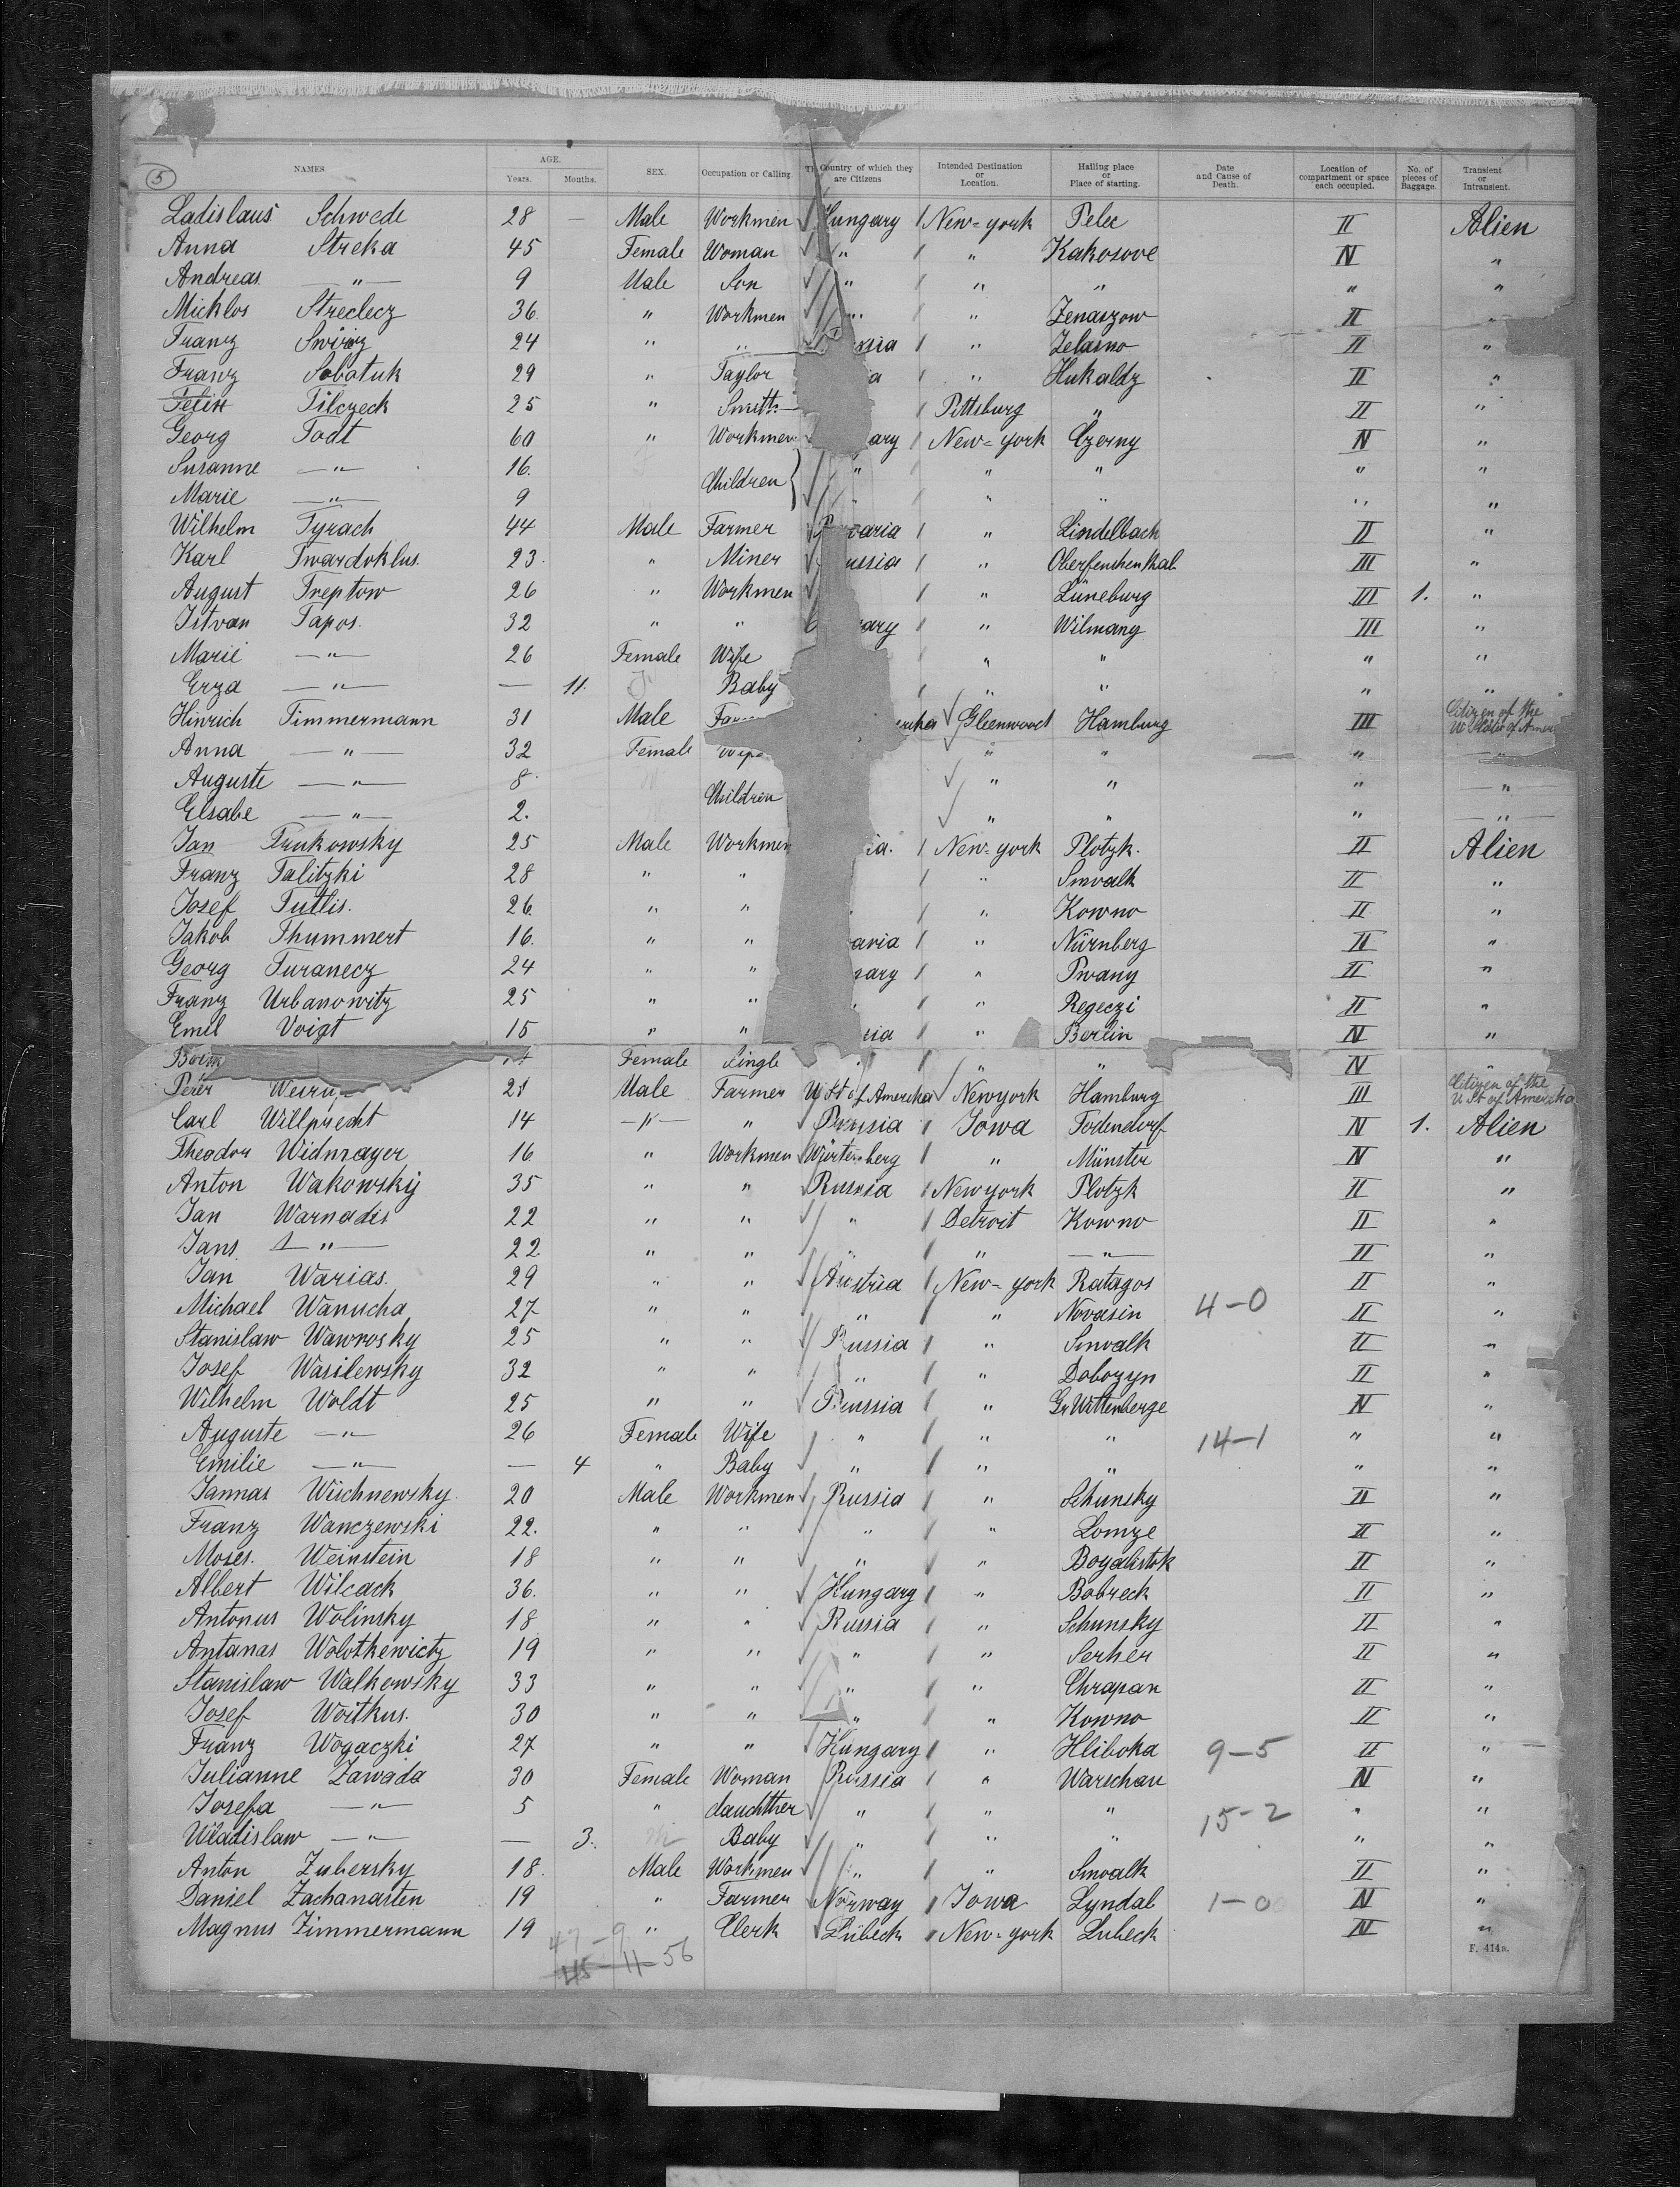 5
NAMES AGE. Years. Months. SEX. Occupation or Calling. Country of which they are Citizens Intended Destination or Location. Hailing place or Place of starting. Date and Cause of Death. Location of compartment or space each occupied. No. of pieces of Baggage. Transient or Intransient.
Ladislaus Schwede 28 — Male Workmen Hungary New-york Pelec II Alien
Anna Streka 45 Female Woman " " Kakosove IV "
Andreas — " — 9 Male Son " " " " "
Michlos Streclecz 36 " Workmen " " Zenaszow II "
Franz 24 " " ssia " Zelasno II "
Franz Sobotuk 29 " Taylor a " Hukaldz II "
Felix Tilczeck 25 " Smith Pittsburg " II "
Georg Todt 60 " Workmen ary New-york Czerny IV "
Susanne — " — 16. Children " " " " "
Marie — " — 9 " " " " "
Wilhelm Tyrach 44 Male Farmer varia " Lindelbach II "
Karl Twardoklus. 23. " Miner ussia " III "
August Treptow 26 " Workmen " Lüneburg III 1. "
Istvan Tapos. 32 " " ary " Wilmany III "
Marie — " — 26 Female Wife " " " "
Erza — " — — 11. Baby " " " "
Hinrich Timmermann 31 Male Far Glenwood Hamburg III Citizen of the
Anna — " — 32 Female " " " "
Auguste — " — 8 Children " " " "
Elsabe — " — 2. " " " "
Jan Trukowsky 25 Male Workmen ia. New-york Plotzk. II Alien
Franz Talitzki 28 " " " Suwalk II "
Josef Tutlis. 26. " " " Kowno II "
Jakob Thummert 16. " " avia " Nürnberg II "
Georg Turanecz 24 " " gary " Pwany II "
Franz Urbanowitz 25 " " " Regeczi II "
Emil Voigt 15 " " sia " Berlin IV "
Female Single " " IV "
Peter 21 Male Farmer U St of Amerika Newyork Hamburg III Citizen of the U St of Amerika
Carl Willprecht 14 — " — " Prussia Iowa Todendorf IV 1. Alien
Theodor Widmayer 16 " Workmen Würtemberg " Münster IV "
Anton Wakowsky 35 " " Russia Newyork Plotzk II "
Jan Warnadis 22 " " " Detroit Kowno II "
Jans. — " — 22 " " " " — " — II "
Jan Warias. 29 " " Austria New-york Ratagos II "
Michael Wanucha 27 " " " " Novasin 4-0 II "
Stanislaw Wawrosky 25 " " Russia " Suwalk II "
Josef Wasilewsky 32 " " " " Dobozyn II "
Wilhelm Woldt 25 " " Prussia " Gr Wittenberge IV "
Auguste — " — 26 Female Wife " " " 14-1 " "
Emilie — " — — 4 " Baby " " " " "
Jannas Wischnewsky 20 Male Workmen Russia " Schunsky II "
Franz Wanczewski 22. " " " " Lomze II "
Moses. Weinstein 18 " " " " Boyalistok II "
Albert Wilcack 36. " " Hungary " Bobreck II "
Antonus Wolinsky 18 " " Russia " Schunsky II "
Antanas Wolotkewictz 19 " " " " Serher II "
Stanislaw Walkewsky 33 " " " " Chrapan II "
Josef Woitkus. 30 " " " " Kowno II "
Franz Wogaczki 27 " " Hungary " Hliboka 9-5 II "
Julianne Zawada 30 Female Woman Russia " Warschau IV "
Josefa — " — 5 " dauchther " " " 15-2 " "
Wladislaw — " — — 3. Baby " " " " "
Anton Zubersky 18. Male Workmen " " Suwalk II "
Daniel Zachanasten 19 " Farmer Norway Iowa Lyndal 1-0 IV "
Magnus Zimmermann 19 " Clerk Lübeck New-york Lubeck IV "
47-9
45-11-56
F. 414a.